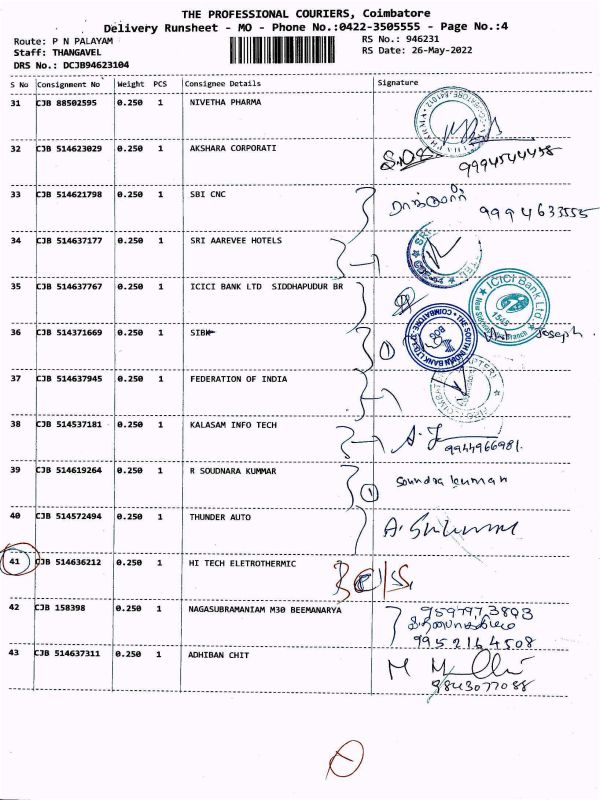 THE PROFESSIONAL COURIERS, Coimbatore
Delivery Runsheet - MO - Phone No.:0422-3505555 - Page No.:4
Route: P N PALAYAM RS No.: 946231
Staff: THANGAVEL RS Date: 26-May-2022
DRS No.: DCJB94623104
S No Consignment No Weight PCS Consignee Details Signature
31 CJB 88502595 0.250 1 NIVETHA PHARMA
32 CJB 514623029 0.250 1 AKSHARA CORPORATI
9994544458
33 CJB 514621798 0.250 1 SBI CNC
9994633555
34 CJB 514637177 0.250 1 SRI AAREVEE HOTELS
35 CJB 514637767 0.250 1 ICICI BANK LTD SIDDHAPUDUR BR
ICICI Bank Ltd.
36 CJB 514371669 0.250 1 SIBK
THE SOUTH INDIAN BANK LTD
Joseph
37 CJB 514637945 0.250 1 FEDERATION OF INDIA
38 CJB 514537181 0.250 1 KALASAM INFO TECH
9944966981.
39 CJB 514619264 0.250 1 R SOUDNARA KUMMAR
Soundra kumar
40 CJB 514572494 0.250 1 THUNDER AUTO
41 CJB 514636212 0.250 1 HI TECH ELETROTHERMIC
42 CJB 158398 0.250 1 NAGASUBRAMANIAM M30 BEEMANARYA
9597973803
9952164508
43 CJB 514637311 0.250 1 ADHIBAN CHIT
9843077088